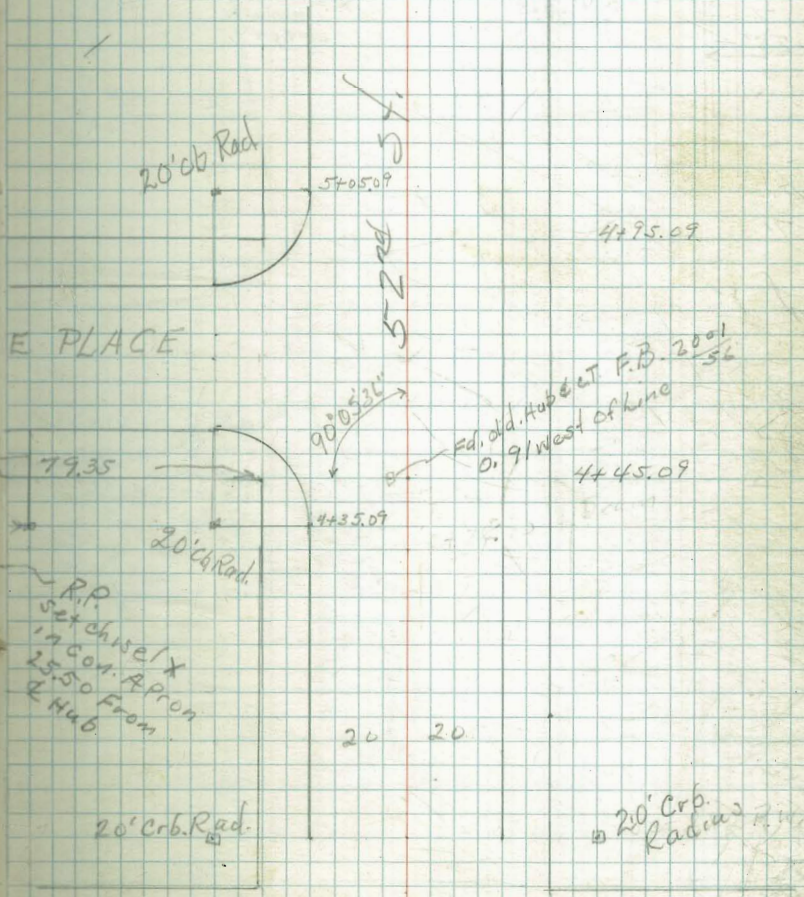 20' cb. Rad
5+05.09
52nd St.
4+95.09
E PLACE
90°05'36"
Fd. old. Hub & T. F.B. 2001/56
0.91 West of Line
79.35
4+45.09
4+35.09
20' Cb Rad.
R.P.
Set chisel X
in Con. Apron
25.50 From
℄ Hub.
20 20
20' Crb. Rad.
20' Crb.
Radius